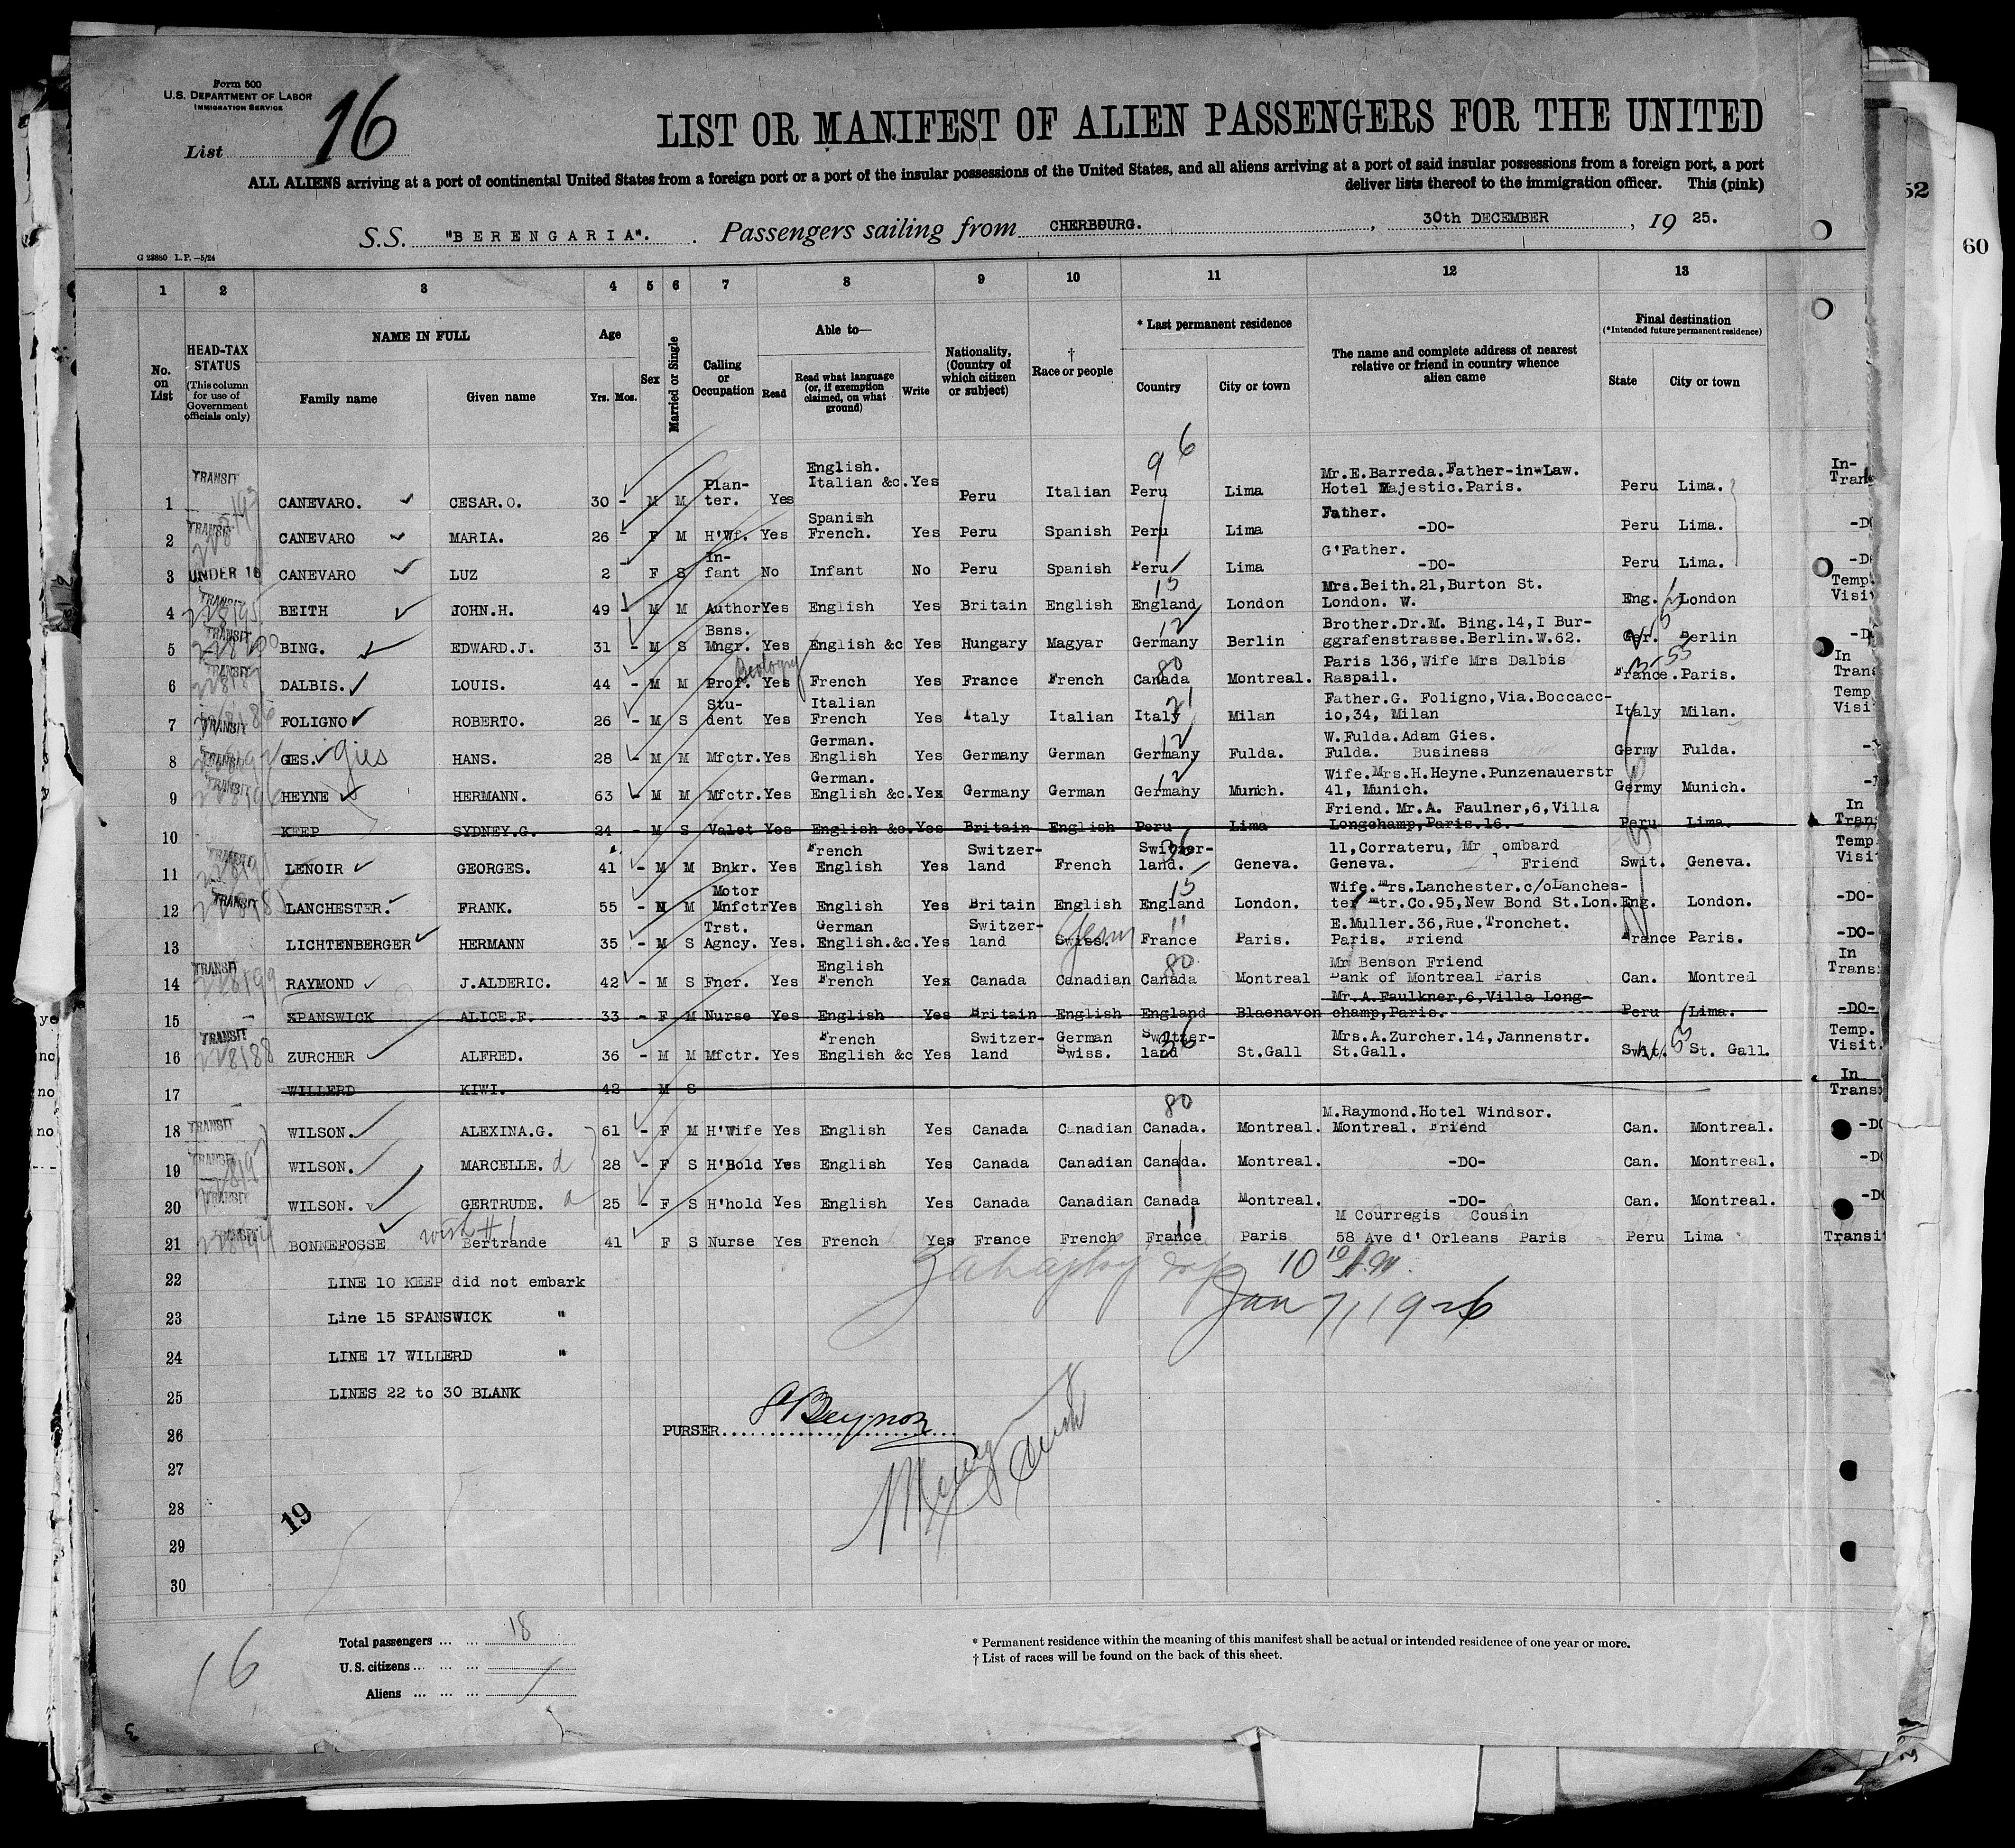 Form 500
U.S. DEPARTMENT OF LABOR
IMMIGRATION SERVICE
List 16
LIST OR MANIFEST OF ALIEN PASSENGERS FOR THE UNITED
ALL ALIENS arriving at a port of continental United States from a foreign port or a port of the insular possessions of the United States, and all aliens arriving at a port of said insular possessions from a foreign port, a port
deliver lists thereof to the immigration officer. This (pink)
S.S. "BERENGARIA". Passengers sailing from CHERBOURG. , 30th DECEMBER , 19 25.
G 23880 L.P.—5/24
1 2 3 4 5 6 7 8 9 10 11 12 13
No. on List
HEAD-TAX STATUS (This column for use of Government officials only)
NAME IN FULL
Family name Given name
Age Yrs. Mos.
Sex
Married or Single
Calling or Occupation
Able to—
Read Read what language (or, if exemption claimed, on what ground) Write
Nationality, (Country of which citizen or subject)
† Race or people
* Last permanent residence
Country City or town
The name and complete address of nearest relative or friend in country whence alien came
Final destination (*Intended future permanent residence)
State City or town
96
1 TRANSIT CANEVARO. CESAR.O. 30 - M M Plan-ter. Yes English. Italian &c. Yes Peru Italian Peru Lima Mr.E.Barreda.Father-in-Law. Hotel Majestic.Paris. Peru Lima. In-Tran
2 TRANSIT CANEVARO MARIA. 26 - F M H'Wf. Yes Spanish French. Yes Peru Spanish Peru Lima Father. -DO- Peru Lima. -DO
3 UNDER 16 CANEVARO LUZ 2 - F S In-fant No Infant No Peru Spanish Peru Lima G'Father. -DO- Peru Lima. -DO
4 TRANSIT 228195 BEITH JOHN.H. 49 - M M Author Yes English Yes Britain English 15 England London Mrs.Beith.21,Burton St. London. W. Eng. London Temp. Visi
5 TRANSIT 228200 BING. EDWARD.J. 31 - M S Bsns. Mngr. Yes English &c Yes Hungary Magyar 12 Germany Berlin Brother.Dr.M. Bing.14,I Bur-ggrafenstrasse.Berlin.W.62. Ger. Berlin -D
6 TRANSIT DALBIS. LOUIS. 44 - M M Prof. Yes French Yes France French 80 Canada Montreal. Paris 136,Wife Mrs Dalbis Raspail. France. Paris. In Tran
7 TRANSIT FOLIGNO ROBERTO. 26 - M S Stu-dent Yes Italian French Yes Italy Italian 21 Italy Milan Father.G. Foligno,Via.Boccacc-io,34, Milan Italy Milan. Temp Visi
8 TRANSIT GES. Gies HANS. 28 - M M Mfctr. Yes German. English Yes Germany German 12 Germany Fulda. W.Fulda.Adam Gies. Fulda. Business Germy Fulda.
9 TRANSIT 228196 HEYNE HERMANN. 63 - M M Mfctr. Yes German. English &c. Yes Germany German 12 Germany Munich. Wife.Mrs.H.Heyne.Punzenauerstr 41, Munich. Germy Munich.
10 KEEP SYDNEY.G. 24 - M S Valet Yes English &c. Yes Britain English Peru Lima Friend. Mr.A. Faulner,6,Villa Longchamp,Paris.16. Peru Lima. In Trans
11 LENOIR GEORGES. 41 - M M Bnkr. Yes French English Yes Switzer-land French 36 Switzer-land. Geneva. 11,Corrateru, Mr ombard Geneva. Friend Swit. Geneva. Temp Visi
12 TRANSIT LANCHESTER. FRANK. 55 - M M Motor Mnfctr Yes English Yes Britain English 15 England London. Wife.Mrs.Lanchester.c/oLanches-ter mtr.Co.95,New Bond St.Lon. Eng. London. -DO-
13 LICHTENBERGER HERMANN 35 - M S Trst. Agncy. Yes. German English.&c. Yes Switzer-land Swiss. 11 France Paris. E.Muller.36,Rue.Tronchet. Paris. Friend France Paris. -DO-
14 TRANSIT 228199 RAYMOND J.ALDERIC. 42 - M S Fncr. Yes English French Yes Canada Canadian 80 Canada Montreal Mr Benson Friend Bank of Montreal Paris Can. Montrel In Trans
15 SPANSWICK ALICE.F. 33 - F M Nurse Yes English Yes Britain English England Blaenavon Mr.A.Faulkner,6,Villa Long-champ,Paris. Peru Lima. -DO-
16 TRANSIT 228188 ZURCHER ALFRED. 36 - M M Mfctr. Yes French English &c Yes Switzer-land German Swiss. 36 Switzer-land St.Gall Mrs.A.Zurcher.14,Jannenstr. St.Gall. Swit. St. Gall. Temp. Visit.
17 WILLERD KIWI. 42 - M S In Trans
18 TRANSIT WILSON. ALEXINA.G. 61 - F M H'Wife Yes English Yes Canada Canadian 80 Canada. Montreal. M.Raymond.Hotel Windsor. Montreal. Friend Can. Montreal. -DO
19 TRANSIT WILSON. MARCELLE. d 28 - F S H'Hold Yes English Yes Canada Canadian Canada. Montreal. -DO- Can. Montreal. -DO
20 TRANSIT WILSON. GERTRUDE. d 25 - F S H'hold Yes English Yes Canada Canadian Canada Montreal. -DO- Can. Montreal. -DO
21 TRANSIT BONNEFOSSE with #1 Bertrande 41 F S Nurse Yes French Yes France French 11 France Paris M Courregis Cousin 58 Ave d' Orleans Paris Peru Lima Transi
22 LINE 10 KEEP did not embark
10 10 A.M.
23 Line 15 SPANSWICK "
Jan 7, 1926
24 LINE 17 WILLERD "
25 LINES 22 to 30 BLANK
26 PURSER
27
28
19
29
30
16
Total passengers ... ... 18
U.S. citizens ... ... ...
Aliens ... ... ...
* Permanent residence within the meaning of this manifest shall be actual or intended residence of one year or more.
† List of races will be found on the back of this sheet.
52
60
ye
no
no
no